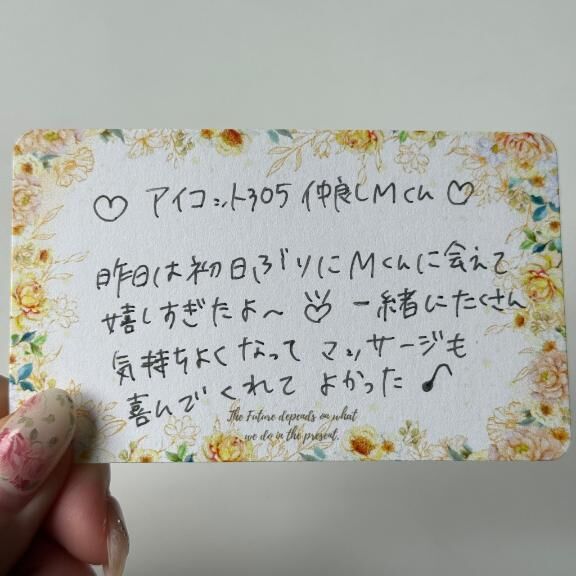 ♡ アイコット305 仲良しMくん ♡
昨日は初日ぶりにMくんに会えて
嬉しすぎたよ〜 ♡ 一緒にたくさん
気持ちよくなって マッサージも
喜んでくれて よかった ♪
The Future depends on what
we do in the present.